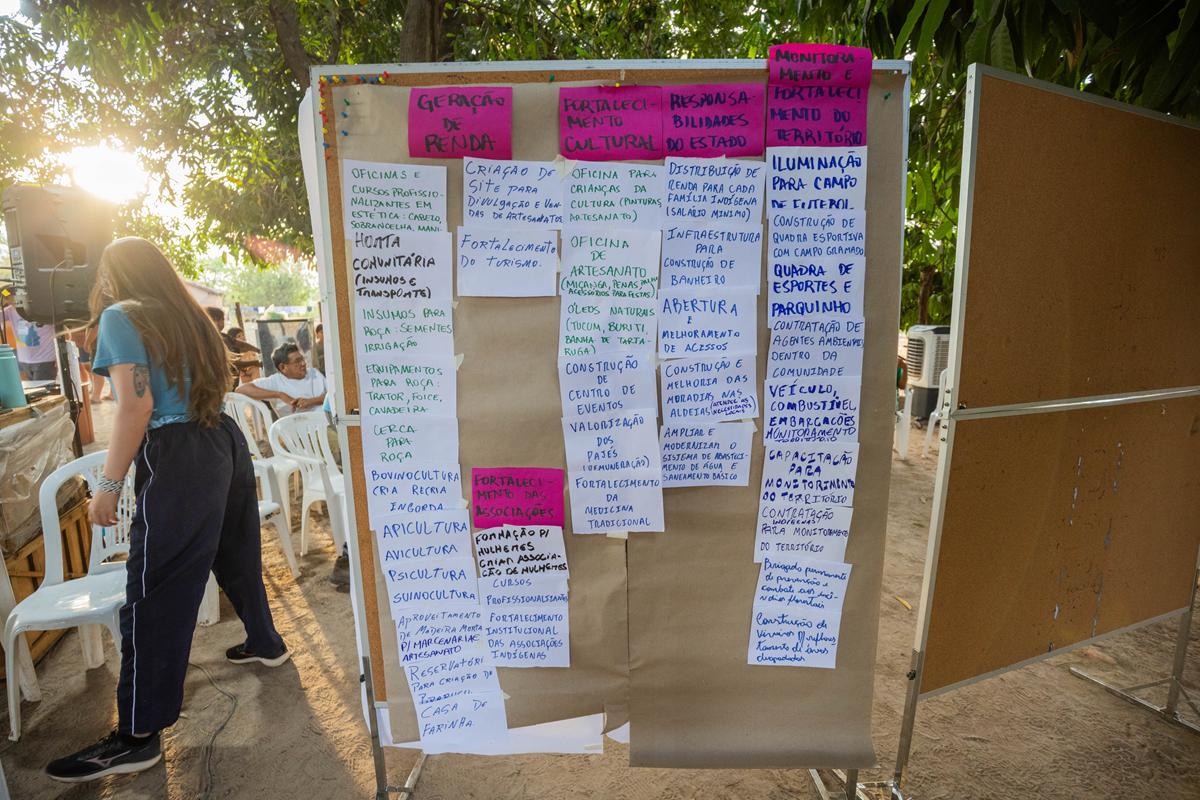 GERAÇÃO
DE
RENDA
OFICINAS E
CURSOS PROFISSIO-
NALIZANTES EM
ESTÉTICA: CABELO,
SOBRANCELHA, MANI
HORTA
COMUNITÁRIA
(INSUMOS E
TRANSPORTE)
INSUMOS PARA
ROÇA: SEMENTES
IRRIGAÇÃO
EQUIPAMENTOS
PARA ROÇA:
TRATOR, FOICE,
CAVADEIRA
CERCA
PARA
ROÇA
BOVINOCULTURA
CRIA RECRIA
ENGORDA
APICULTURA
AVICULTURA
PSICULTURA
SUINOCULTURA
APROVEITAMENTO
DE MADEIRA MORTA
P/ MARCENARIA E
ARTESANATO
RESERVATÓRI
PARA CRIAÇÃO DE
CASA DE
FARINHA
CRIAÇÃO DE
SITE PARA
DIVULGAÇÃO E VEN-
DAS DE ARTESANATOS
FORTALECIMENTO
DO TURISMO.
FORTALECI-
MENTO DAS
ASSOCIAÇÕES
FORMAÇÃO P/
MULHERES
CRIAR ASSOCIA-
ÇÃO DE MULHERES
CURSOS
PROFISSIONALIZANTES
FORTALECIMENTO
INSTITUCIONAL
DAS ASSOCIAÇÕES
INDÍGENAS
FORTALECI-
MENTO
CULTURAL
OFICINA PARA
CRIANÇAS DA
CULTURA (PINTURAS,
ARTESANATO)
OFICINA
DE
ARTESANATO
(MIÇANGA, PENAS, PALHA
ACESSÓRIOS PARA FESTAS)
ÓLEOS NATURAIS
(TUCUM, BURITI,
BANHA DE TARTA-
RUGA)
CONSTRUÇÃO
DE
CENTRO DE
EVENTOS
VALORIZAÇÃO
DOS
PAJÉS
(REMUNERAÇÃO)
FORTALECIMENTO
DA
MEDICINA
TRADICIONAL
RESPONSA-
BILIDADES
DO ESTADO
DISTRIBUIÇÃO DE
RENDA PARA CADA
FAMÍLIA INDÍGENA
(SALÁRIO MÍNIMO)
INFRAESTRUTURA
PARA
CONSTRUÇÃO DE
BANHEIRO
ABERTURA
E
MELHORAMENTO
DE ACESSOS
CONSTRUÇÃO E
MELHORIA DAS
MORADIAS NAS
ALDEIAS (ATENDER AS
NECESSIDADES
LOCAIS)
AMPLIAR E
MODERNIZAR O
SISTEMA DE ABASTECI-
MENTO DE ÁGUA E
SANEAMENTO BÁSICO
MONITORA-
MENTO E
FORTALECI-
MENTO DO
TERRITÓRIO
ILUMINAÇÃO
PARA CAMPO
DE FUTEBOL
CONSTRUÇÃO DE
QUADRA ESPORTIVA
COM CAMPO GRAMADO
QUADRA DE
ESPORTES E
PARQUINHO
CONTRATAÇÃO DE
AGENTES AMBIENTAIS
DENTRO DA
COMUNIDADE
VEÍCULO,
COMBUSTÍVEL,
EMBARCAÇÕES
MONITORAMENTO
CAPACITAÇÃO
PARA
MONITORIMENTO
DO TERRITÓRIO
CONTRATAÇÃO
INDÍGENAS
PARA MONITORAMENTO
DO TERRITÓRIO
Brigada permanente
de prevenção e
combate aos incê-
ndios florestais
Construção de
viveiros p/ reflores
tamento de áreas
degradadas